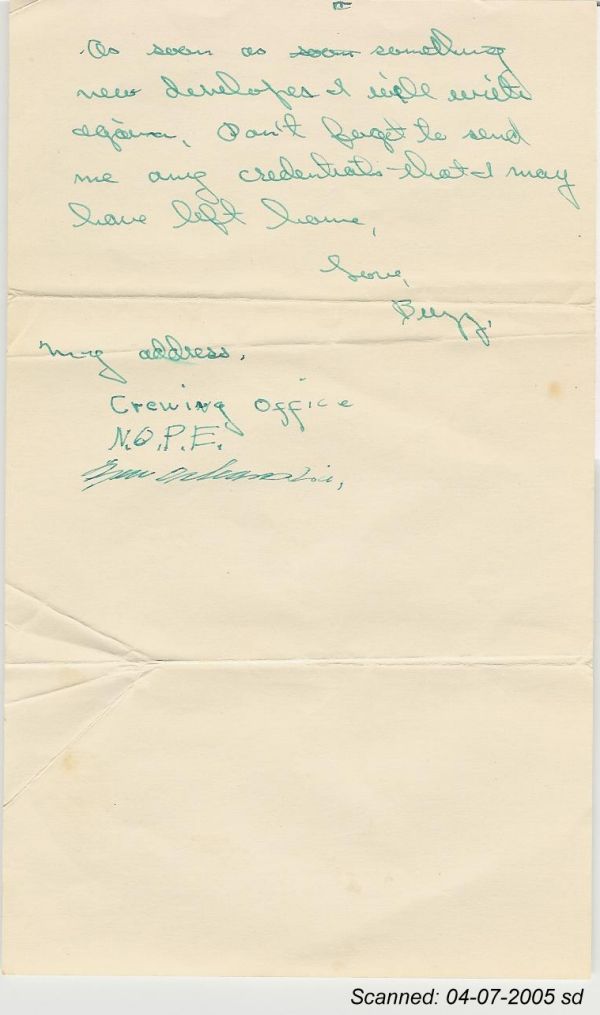 As soon as soon something
new developes I will write
again. Don't forget to send
me any credentials that I may
have left home.
Love,
Buzz.
My address.
Crewing Office
N.O.P.E.
New Orleans
Scanned: 04-07-2005 sd